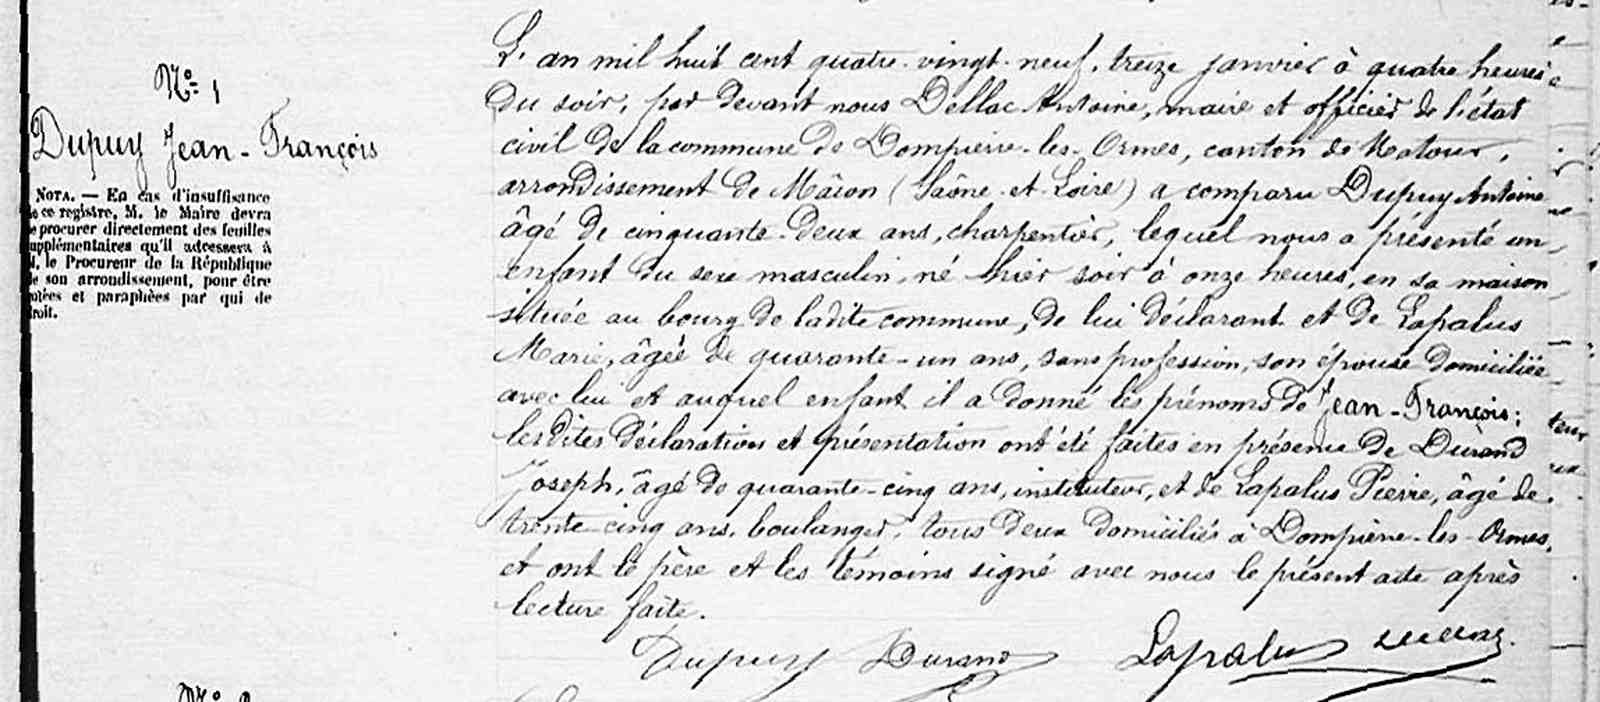 N° 1
Dupuy Jean-François
NOTA. — En cas d'insuffisance
de ce registre, M. le Maire devra
se procurer directement des feuilles
supplémentaires qu'il adressera à
M. le Procureur de la République
de son arrondissement, pour être
cotées et paraphées par qui de
droit.
L'an mil huit cent quatre-vingt-neuf, treize janvier à quatre heures
du soir, par devant nous Dellac Antoine, maire et officier de l'état
civil de la commune de Dompierre-les-Ormes, canton de Matour,
arrondissement de Mâcon (Saône-et-Loire) a comparu Dupuy Antoine
âgé de cinquante-deux ans, charpentier, lequel nous a présenté un
enfant du sexe masculin, né hier soir à onze heures, en sa maison
située au bourg de ladite commune, de lui déclarant et de Lapalus
Marie, âgée de quarante-un ans, sans profession, son épouse domiciliée
avec lui et auquel enfant il a donné les prénoms de Jean-François;
lesdites déclaration et présentation ont été faites en présence de Durand
Joseph, âgé de quarante-cinq ans, instituteur, et de Lapalus Pierre, âgé de
trente-cinq ans, boulanger, tous deux domiciliés à Dompierre-les-Ormes,
et ont le père et les témoins signé avec nous le présent acte après
lecture faite.
Dupuy Durand Lapalus
N°